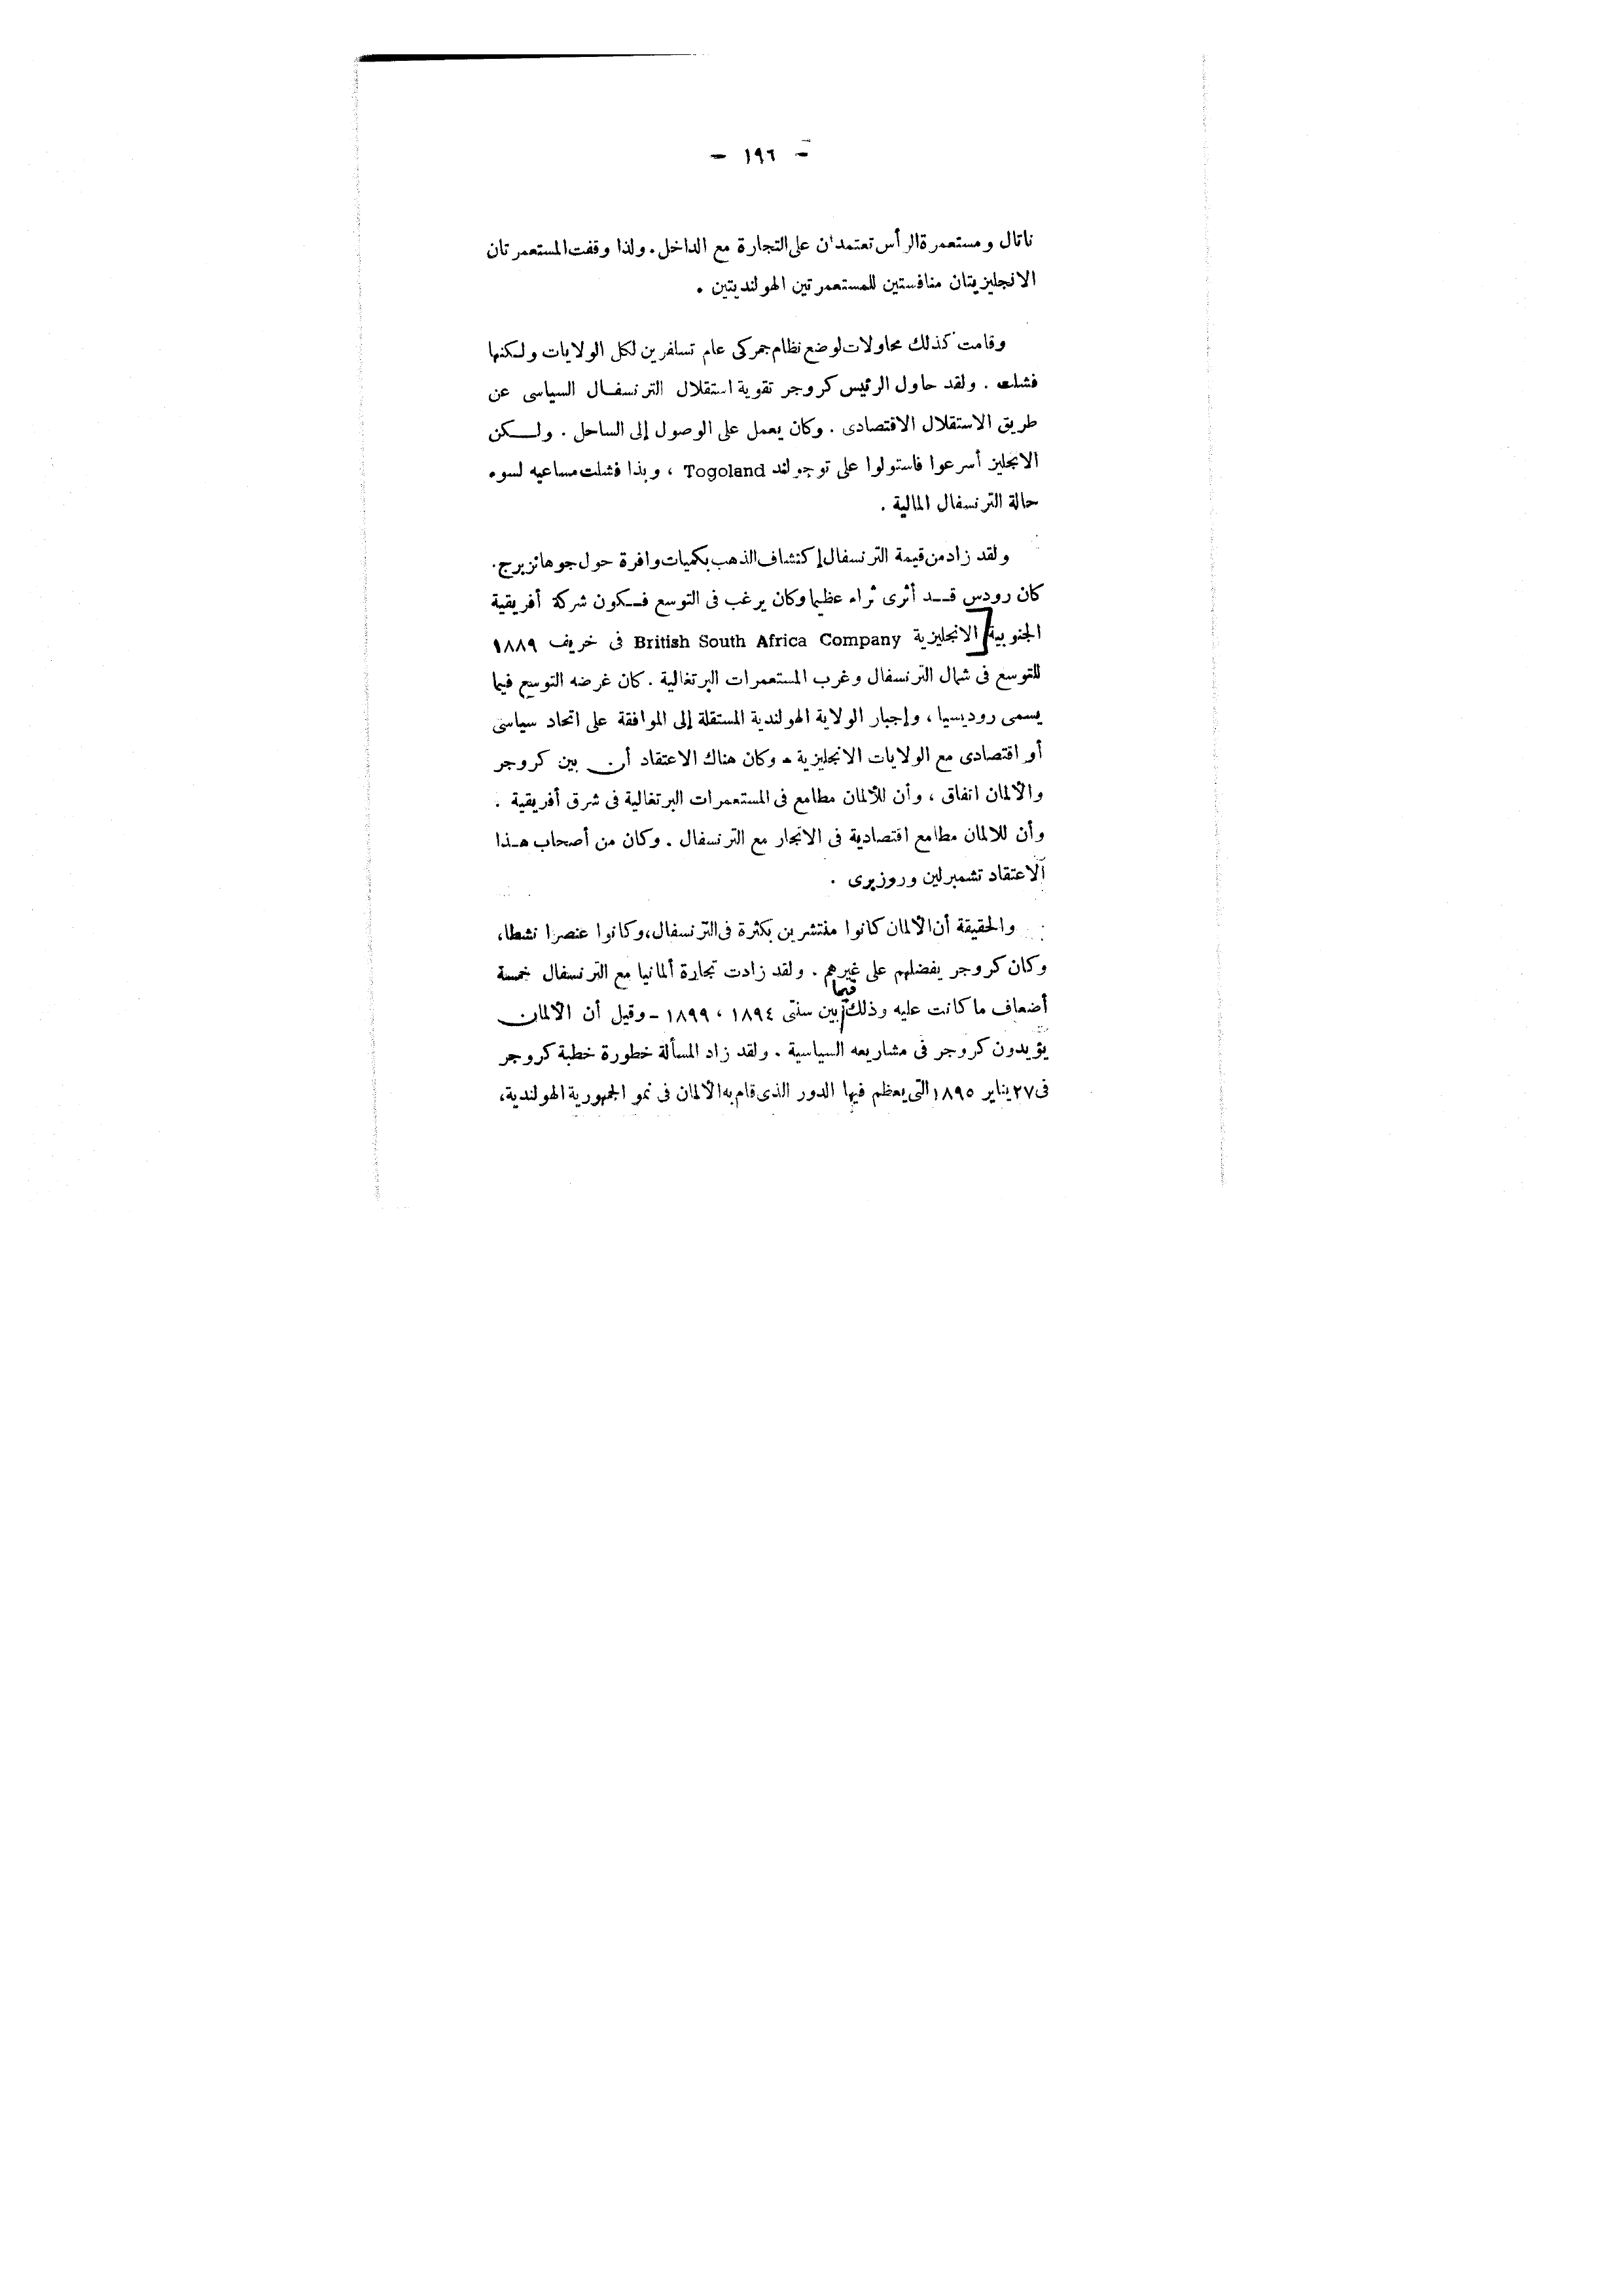 - ١٩٦ -
ناتال ومستعمرة الرأس تعتمدان على التجارة مع الداخل. ولذا وقفت المستعمرتان
الانجليزيتان منافستين للمستعمرتين الهولنديتين .
وقامت كذلك محاولات لوضع نظام جمركى عام تسافرين لكل الولايات ولكنها
فشلت . ولقد حاول الرئيس كروجر تقوية استقلال الترنسفال السياسى عن
طريق الاستقلال الاقتصادى . وكان يعمل على الوصول إلى الساحل . ولكن
الانجليز أسرعوا فاستولوا على توجولند Togoland ، وبذا فشلت مساعيه لسوء
حالة الترنسفال المالية .
ولقد زاد من قيمة الترنسفال إكتشاف الذهب بكميات وافرة حول جوهانزبرج.
كان رودس قد أثرى ثراء عظيما وكان يرغب فى التوسع فكون شركة أفريقية
الجنوبية الانجليزية British South Africa Company فى خريف ١٨٨٩
للتوسع فى شمال الترنسفال وغرب المستعمرات البرتغالية . كان غرضه التوسع فيما
يسمى روديسيا ، وإجبار الولاية الهولندية المستقلة إلى الموافقة على اتحاد سياسى
أو اقتصادى مع الولايات الانجليزية - وكان هناك الاعتقاد أن بين كروجر
والألمان اتفاق ، وأن للألمان مطامع فى المستعمرات البرتغالية فى شرق أفريقية .
وأن للالمان مطامع اقتصادية فى الاتجار مع الترنسفال . وكان من أصحاب هذا
الاعتقاد تشمبرلين وروزبرى .
والحقيقة أن الألمان كانوا منتشرين بكثرة فى الترنسفال، وكانوا عنصرا نشطا،
وكان كروجر يفضلهم على غيرهم . ولقد زادت تجارة ألمانيا مع الترنسفال خمسة
أضعاف ما كانت عليه وذلك فيما بين سنتى ١٨٩٤ ، ١٨٩٩ - وقيل أن الألمان
يؤيدون كروجر فى مشاريعه السياسية . ولقد زاد المسألة خطورة خطبة كروجر
فى ٢٧ يناير ١٨٩٥ التى يعظم فيها الدور الذى قام به الألمان فى نمو الجمهورية الهولندية،